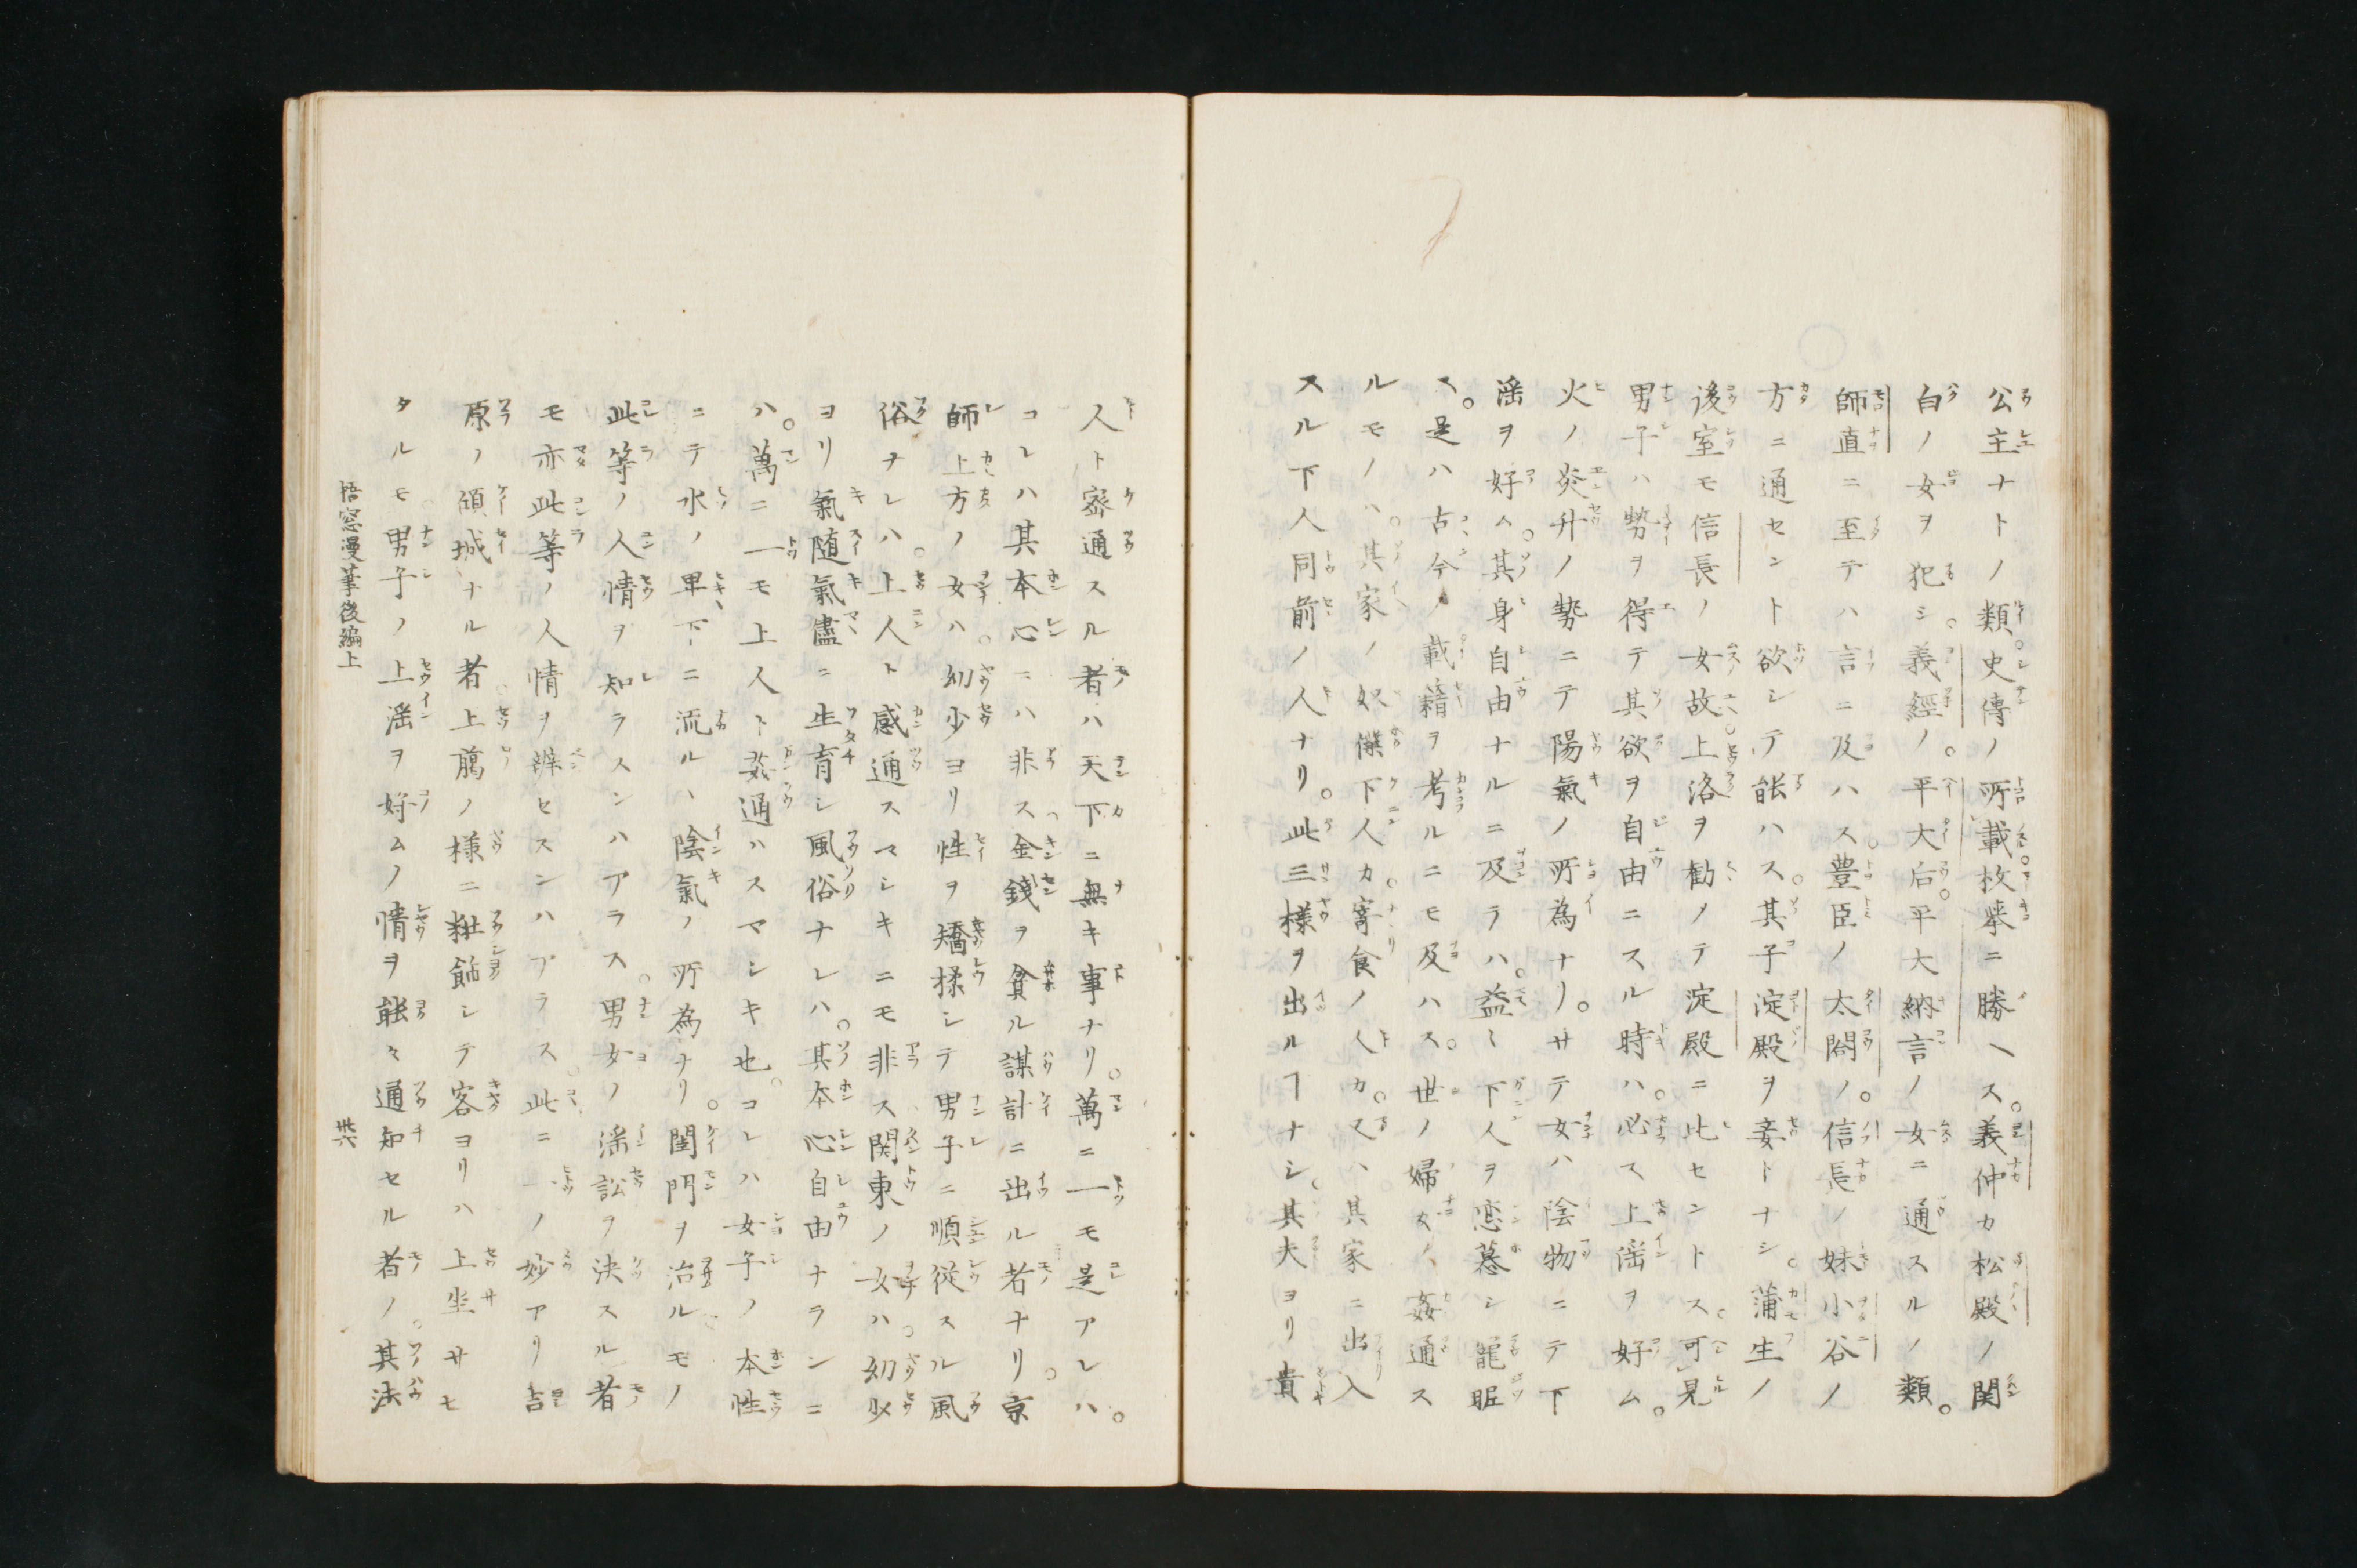 公主ナトノ類。史傳ノ所載枚挙ニ勝ヘス。義仲カ松殿ノ関
白ノ女ヲ犯シ。義經ノ。平大后。平大納言ノ女ニ通スルノ類。
師直ニ至テハ言ニ及ハス。豊臣ノ太閤ノ。信長ノ妹小谷ノ
方ニ通セント欲シテ能ハス。其子淀殿ヲ妾トナシ。蒲生ノ
後室モ信長ノ女故。上洛ヲ勧メテ淀殿ニ比セントス。可見
男子ハ勢ヲ得テ其欲ヲ自由ニスル時ハ。必ス上淫ヲ好ム。
火ノ炎升ノ勢ニテ陽氣ノ所為ナリ。サテ女ハ陰物ニテ下
淫ヲ好ム。其身自由ナルニ及ラハ。益〻下人ヲ恋慕シ寵昵
ス。是ハ古今ノ載籍ヲ考ルニモ及ハス。世ノ婦女ノ姦通ス
ルモノハ。其家ノ奴僕下人カ。寄食ノ人カ。又ハ其家ニ出入
スル下人同前ノ人ナリ。此三様ヲ出ルヿナシ。其夫ヨリ貴
人ト密通スル者ハ天下ニ無キ事ナリ。萬ニ一モ是アレハ。
コレハ其本心ニハ非ス。金錢ヲ貪ル謀計ニ出ル者ナリ。京
師上方ノ女ハ。幼少ヨリ性ヲ矯揉シテ男子ニ順從スル風
俗ナレハ。上人ト感通スマシキニモ非ス。関東ノ女ハ。幼少
ヨリ氣随氣儘ニ生育シ風俗ナレハ。其本心自由ナランニ
ハ。萬ニ一モ上人ト姦通ハスマシキ也。コレハ女子ノ本性
ニテ水ノ卑下ニ流ルヽ陰氣ノ所為ナリ。閨門ヲ治ルモノ
此等ノ人情ヲ知ラスンハアラス。男女ノ淫訟ヲ決スル者
モ亦此等ノ人情ヲ辨セスンハアラス。此ニ一ノ妙アリ吉
原ノ傾城ナル者。上﨟ノ様ニ粧餙シテ客ヨリハ上坐サセ
タルモ男子ノ上淫ヲ好ムノ情ヲ能々通知セル者ノ。其法
悟窓漫筆後編上
卅六